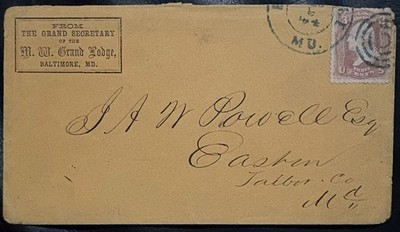 FROM
THE GRAND SECRETARY
OF THE
M. W. Grand Lodge,
BALTIMORE, MD.
MD.
J A W Powell Esq
Easton
Talbot Co
Md